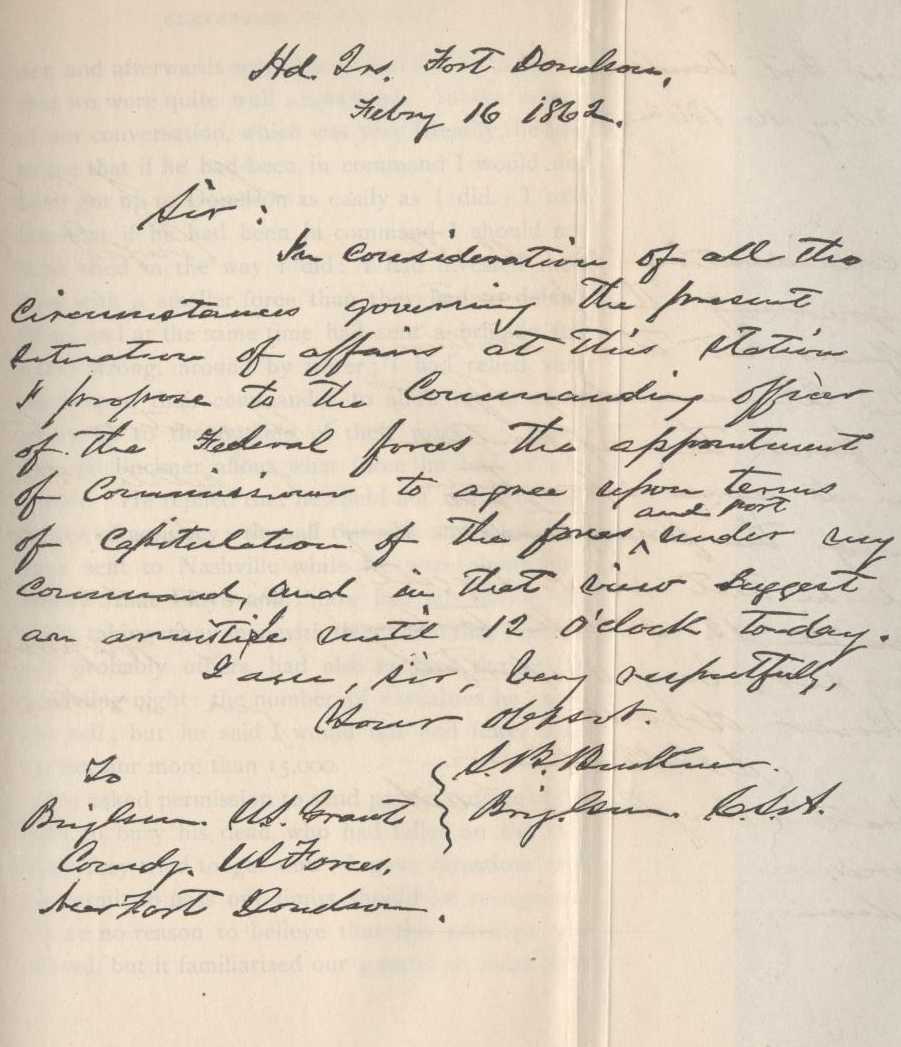 Hd. Qrs. Fort Donelson,
Febry 16 1862.
Sir:
In consideration of all the
circumstances governing the present
situation of affairs at this station
I propose to the Commanding officer
of the Federal forces the appointment
of Commissioners to agree upon terms
and post
of capitulation of the forces ^ under my
command, and in that view suggest
an armistice until 12 o'clock to-day.
I am, sir, very respectfully,
Your obt srvt.
S. B. Buckner.
Brig. Gen. C.S.A.
To
Brig Gen. U.S. Grant
Comdg. US Forces,
Near Fort Donelson.